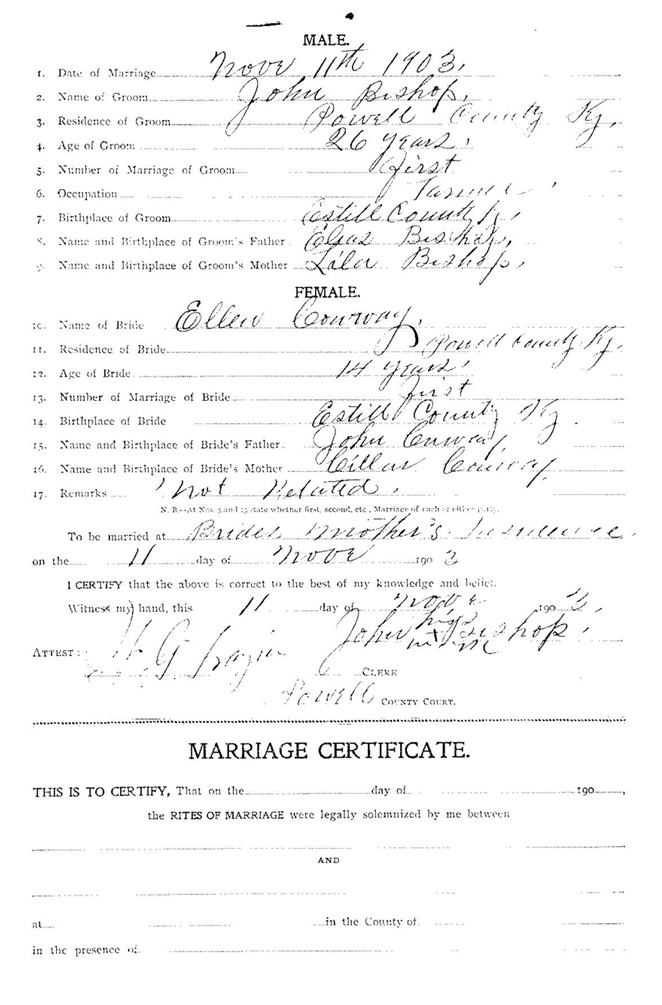 MALE.
1. Date of Marriage Nove 11th 1903.
2. Name of Groom John Bishop,
3. Residence of Groom Powell County Ky,
4. Age of Groom 26 years.
5. Number of Marriage of Groom first
6. Occupation
7. Birthplace of Groom Estill County Ky,
8. Name and Birthplace of Groom's Father Elias Bishop,
9. Name and Birthplace of Groom's Mother Lila Bishop,
FEMALE.
10. Name of Bride Ellen Conway,
11. Residence of Bride Powell County Ky.
12. Age of Bride 14 years.
13. Number of Marriage of Bride first
14. Birthplace of Bride Estill County Ky
15. Name and Birthplace of Bride's Father John Conway,
16. Name and Birthplace of Bride's Mother Conway,
17. Remarks Not Related.
N. B.—At Nos. 5 and 13 state whether first, second, etc., Marriage of each or either party.
To be married at Brides mother's
on the 11 day of Nove 190 3
I CERTIFY that the above is correct to the best of my knowledge and belief.
Witness my hand, this 11 day of Nove 190 3.
John his x mark Bishop.
ATTEST:
CLERK
Powell COUNTY COURT.
MARRIAGE CERTIFICATE.
THIS IS TO CERTIFY, That on the day of 190 ,
the RITES OF MARRIAGE were legally solemnized by me between
AND
at in the County of
in the presence of